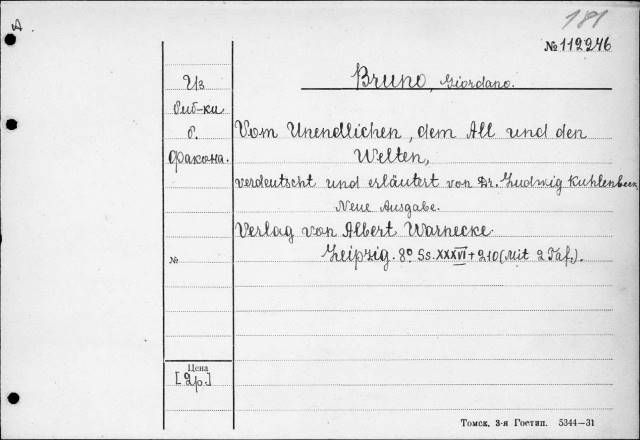 A
181
№ 112246
Bruno, Giordano.
Из
биб-ки
б.
Факона.
Vom Unendlichen, dem All und den
Welten,
verdeutscht und erläutert von Dr. Ludwig Kuhlenbeck
Neue Ausgabe.
Verlag von Albert Warnecke
Leipzig. 8° Ss. XXXVI + 210 (Mit 2 Taf.).
№
Цена
[2р.]
Томск, 3-я Гостип. 5344—31